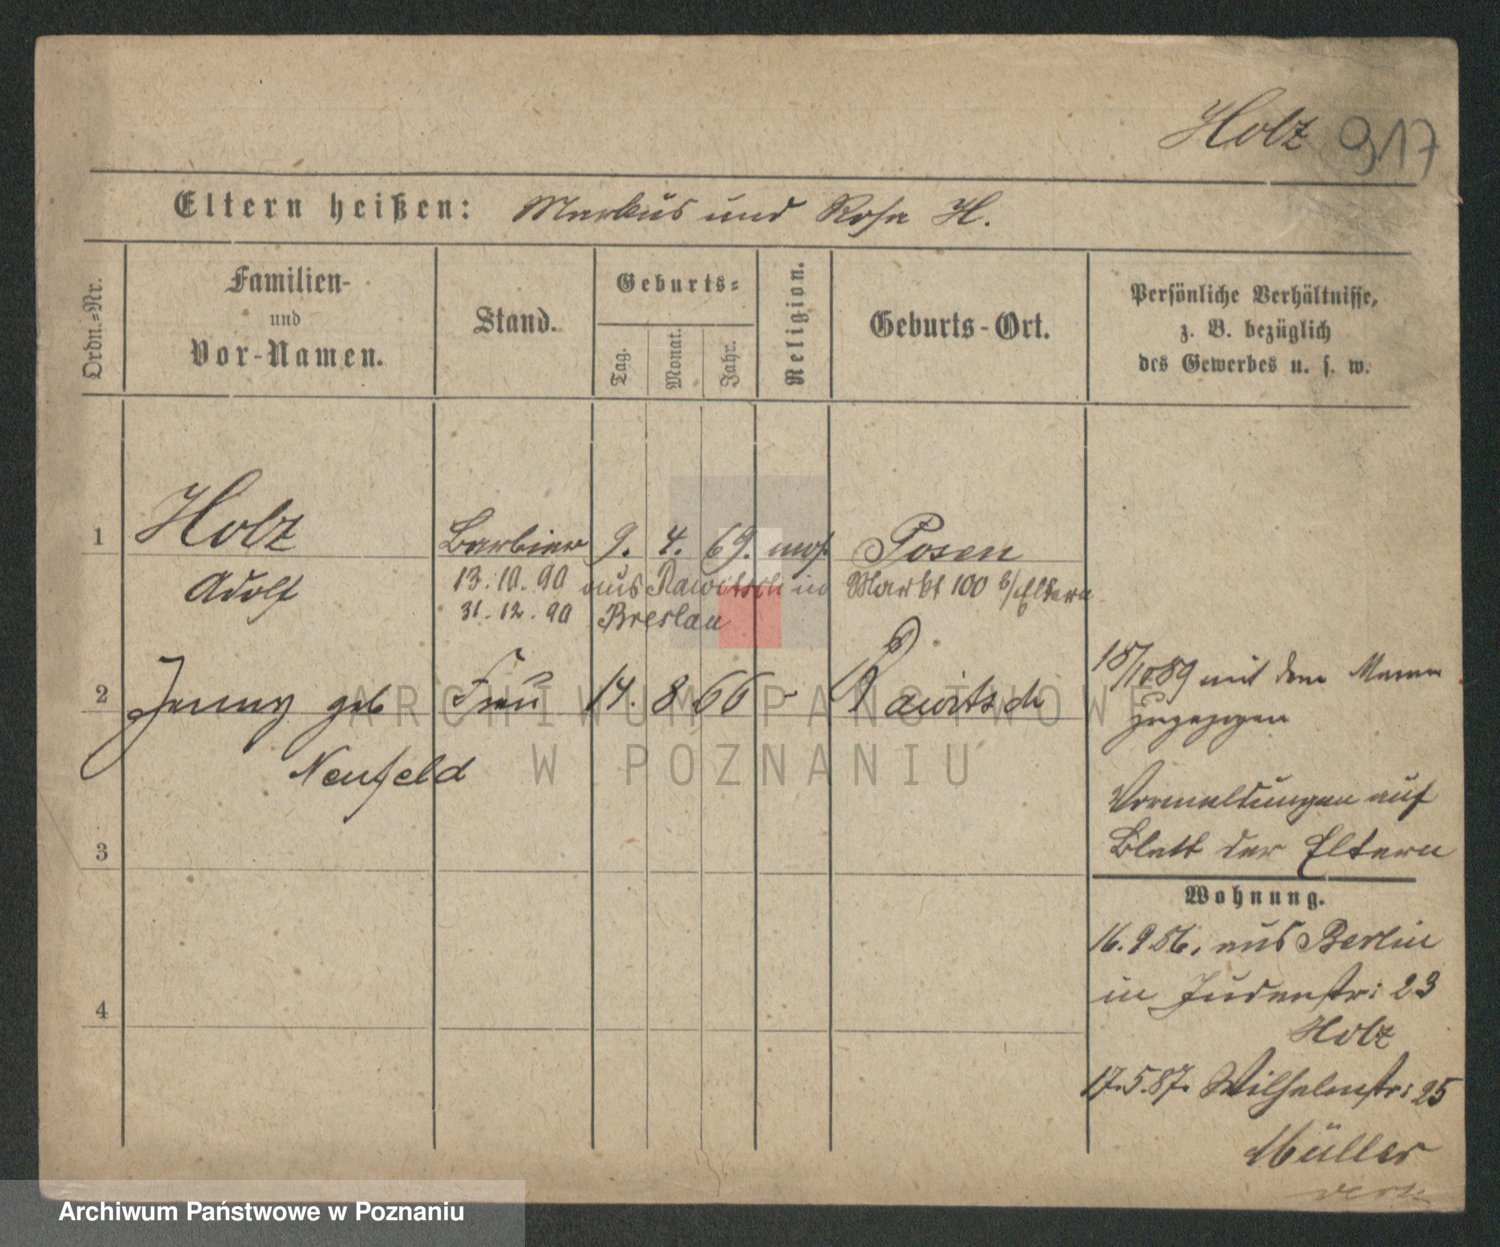 Holz 917
Eltern heißen: Markus und Rosa H.
Ordn.-Nr.
Familien-
und
Vor-Namen.
Stand.
Geburts-
Tag.
Monat.
Jahr.
Religion.
Geburts-Ort.
Persönliche Verhältnisse,
z. B. bezüglich
des Gewerbes u. s. w.
1 Holz Barbier 9. 4. 69. mos Posen
Adolf 13.10.90 aus Rawitsch in Markt 100 b/Eltern
31.12.90 Breslau
2 Jenny geb Frau 14. 8 66 - Rawitsch
Neufeld
18/10 89 mit dem Mann
zugezogen
Vormeldungen auf
Blatt der Eltern
3
4
Wohnung.
16.9 86. aus Berlin
in Judenstr: 23
Holz
17.5.87. Wilhelmstr: 25
Müller
ARCHIWUM PAŃSTWOWE
W POZNANIU
Archiwum Państwowe w Poznaniu